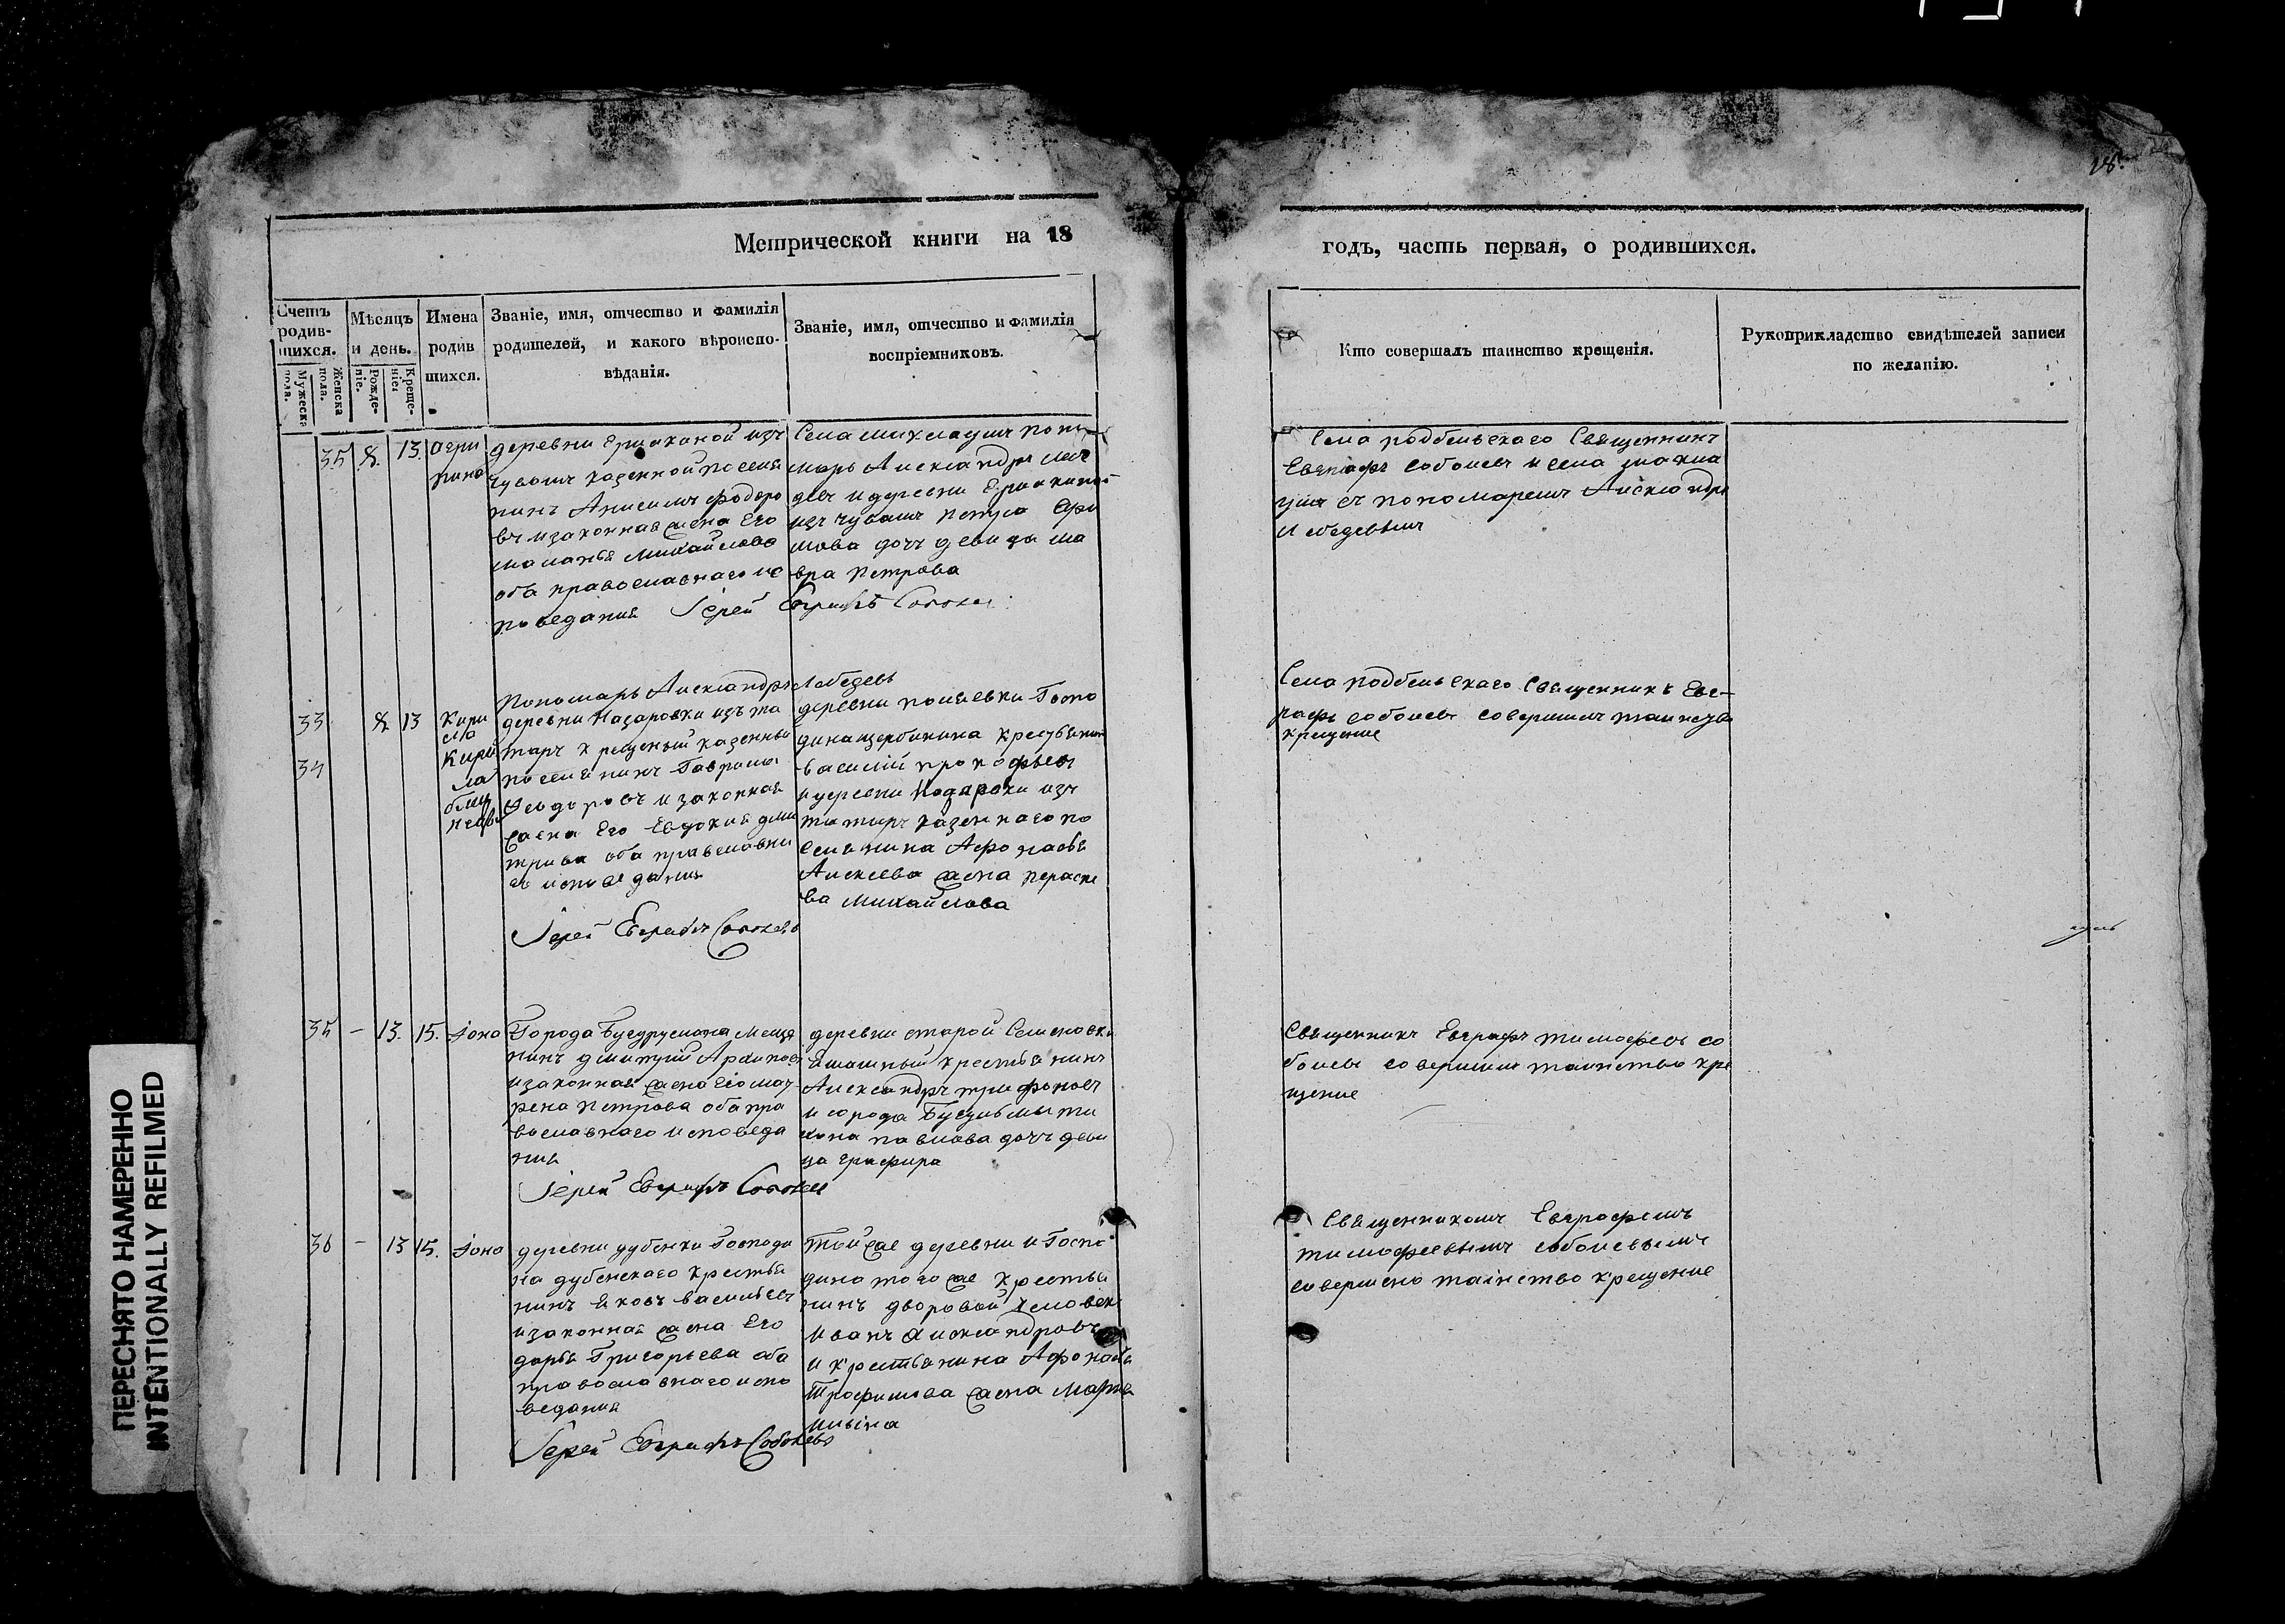 Метрической книги на 18
годъ, часть первая, о родившихся.
Счетъ родив-шихся.
Мужеска пола.
Женска пола.
Мѣсяцъ и день.
Рожде-ніе.
Креще-ніе.
Имена родив шихся.
Званіе, имя, отчество и фамилія
родителей, и какого вѣроиспо-
вѣданія.
Званіе, имя, отчество и фамилія
воспріемниковъ.
Кто совершалъ таинство крещенія.
Рукоприкладство свидѣтелей записи
по желанію.
35 8. 13.
деревни изъ
чувашъ казенной поселя
нинъ Анисимъ федоро
въ и законная жена Его
маланья михайлова
оба православнаго ис
поведания Іерей Евграфъ Соболевъ
Села поно
марь Александръ лебе
девъ и деревни
изъ чувашъ петра
мова дочь девица ма
вра петрова
Села подбельскаго Священникъ
Евграфъ соболевъ и села
съ пономаремъ Александро
лебедевымъ
Пономарь Александръ Лебедевъ
33 8 13 Кири
ла
34 Кири
ла
близ
нецы
деревни Назаровки изъ та
таръ крещеный казенный
поселянинъ Гаврила
Феодоровъ и законная
жена Его Евдокия дми
триева оба православна
го исповедания
Іерей Евграфъ Соболевъ
деревни Госпо
дина щербинина крестьянинъ
василий прокофьевъ
и деревни изъ
татаръ казеннаго по
селянина Афонасья
Алексеева жена параске
ва михайлова
Села подбельскаго Священникъ Евг-
рафъ соболевъ совершилъ таинство
крещение
35 - 13. 15. Іона
Города Бугуруслана меща
нинъ дмитрий Архипов
и законная жена его мат
рена петрова оба пра
вославнаго исповеда
ния
Іерей Евграфъ Соболевъ
деревни старой Семеновки
ямашный крестьянинъ
Александръ трифоновъ
и города Бугульмы ти
хона павлова дочь деви
ца
Священникъ Евграфъ тимофеевъ со
болевъ совершилъ таинство кре
щение
36 - 13 15. Іона
деревни дубенки Господи
на дубенскаго крестья
нинъ яковъ васильевъ
и законная жена Его
дарья Григорьева оба
православнаго испо
ведания
Іерей Евграфъ Соболевъ
Той же деревни и Госпо
дина того же крестья
нинъ дворовой человекъ
иванъ александровъ
и крестьянина Афонасья
трофимова жена Марья
ильина
Священникомъ Евграфомъ
тимофеевымъ соболевымъ
совершено таинство крещение
ПЕРЕСНЯТО НАМЕРЕННО
INTENTIONALLY REFILMED